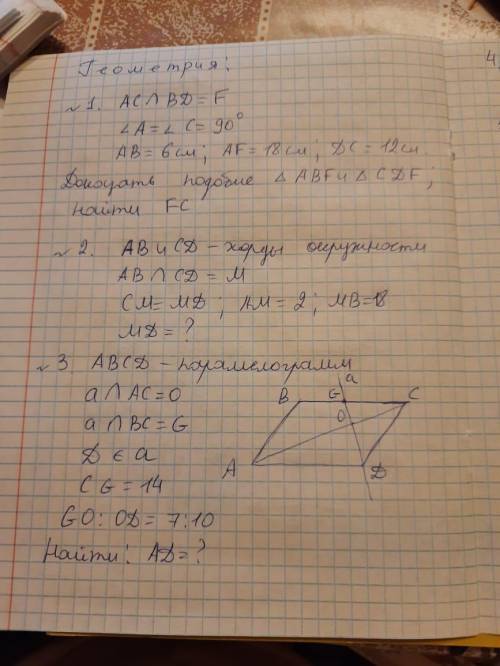 Геометрия:
4
№1. AC∩BD = F
∠A = ∠C = 90°
AB = 6 см; AF = 18 см; DC = 12 см
Доказать подобие △ABF и △CDF;
Найти FC
№2. AB и CD – хорды окружности
AB ∩ CD = M
CM = MD; AM = 2; MB = 18
MD = ?
№3. ABCD – паралелограмм
a ∩ AC = O
a ∩ BC = G
D ∈ a
CG = 14
GO : OD = 7:10
Найти: AD = ?
a
B G C
O
A D